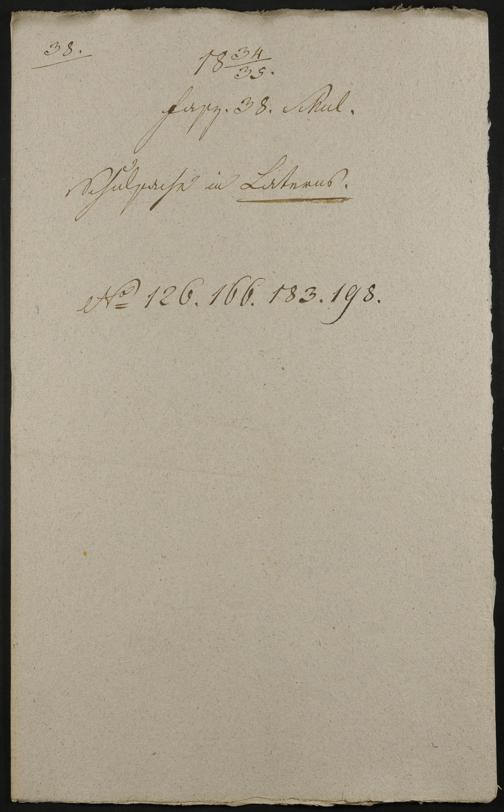 38.
18 34/35.
Fasz. 38. Schul.
Schulsache in Laterns.
No 126. 166. 183. 198.